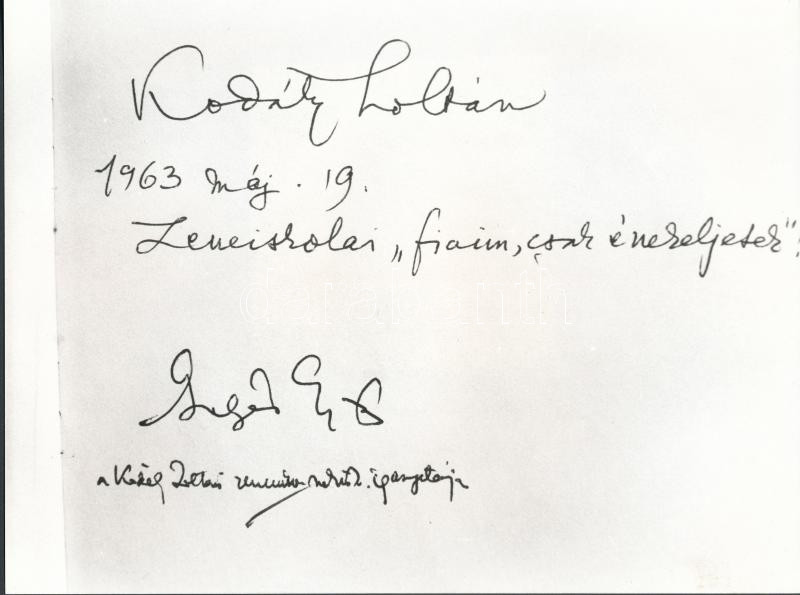 Kodály Zoltán
1963 máj. 19.
Zeneiskolai „fiaim, csak énekeljetek”!
a Kodály Zoltán igazgatója